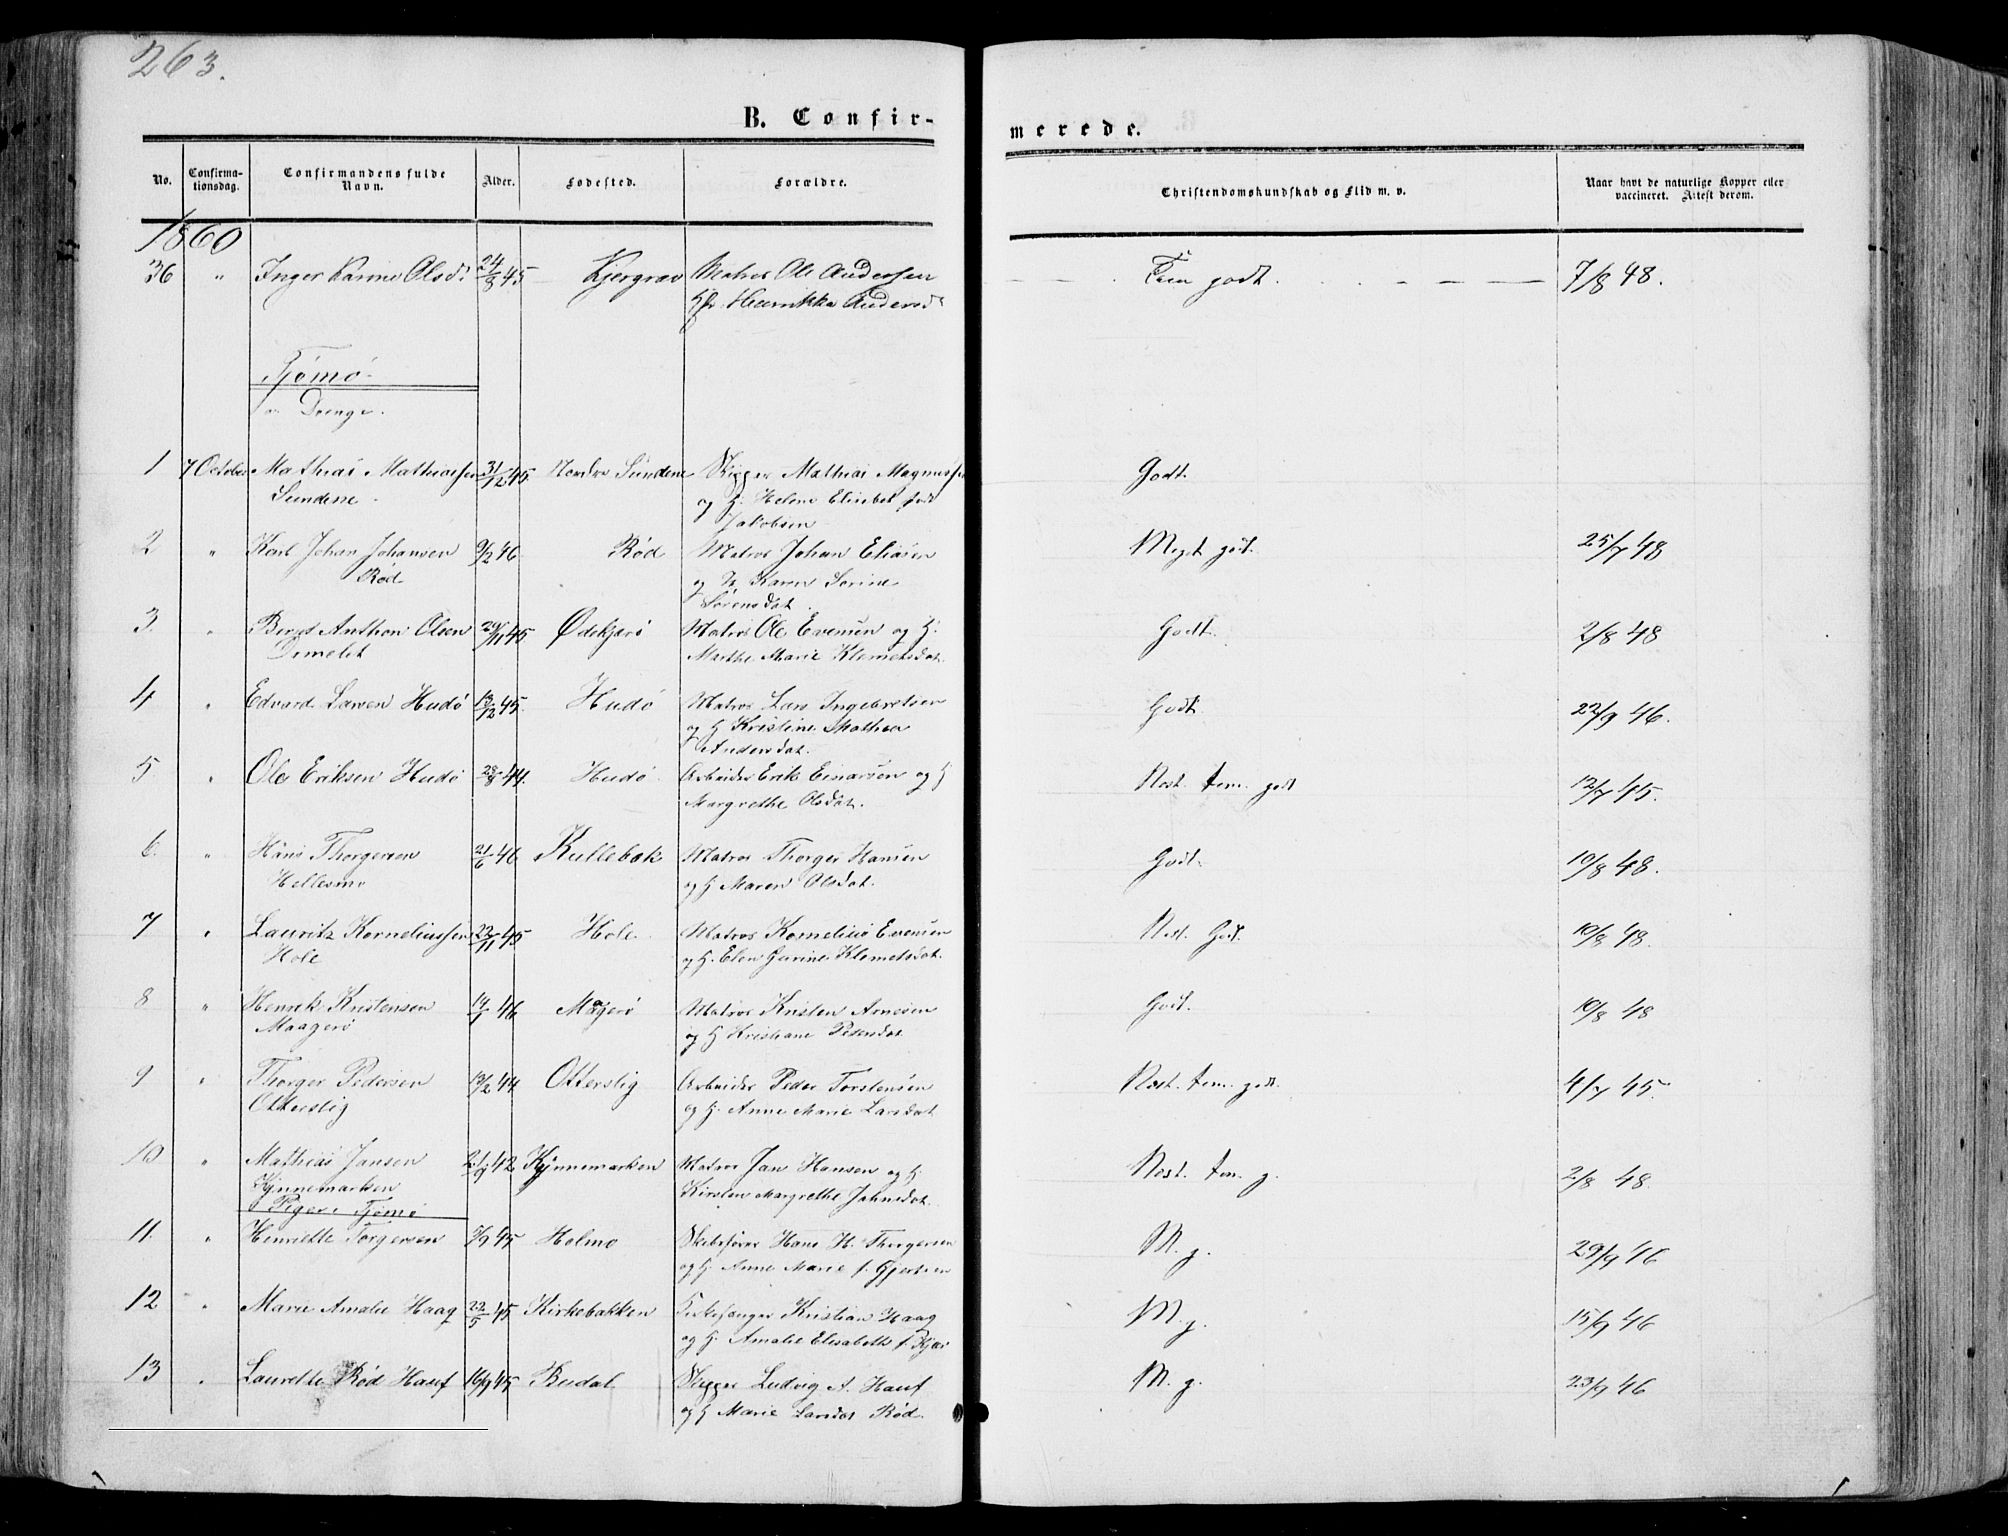 263.
B. Confir-
merede.
No.
Confirma-
tionsdag.
Confirmandens fulde
Navn.
Alder.
Fødested.
Forældre.
Christendomskundskab og Flid m. v.
Naar havt de naturlige Kopper eller
vaccineret. Attest derom.
1860
36 " Inger Karine Olsd. 24/8 45 Kjergrav Matros Ole Andersen Tem godt. 7/8 48.
Henrikke Andersd.
Tjømø
a. Drenge.
1 7 October Mathias Mathiassen 31/12 45. Nordre Sundene Skipper Mathias Magnussen Godt.
Sundene og H. Helene Elisabet født
Jakobsen
2 " Karl Johan Johansen 9/2 46 Rød Matros Johan Eliasen Meget godt. 25/7 48
Rød og H. Karen Sorine
Sørensdat.
3. " Bernt Anthon Olsen 29/11 45 Ødekjær Matros Ole Evensen og H. Godt. 2/8 48
Ormelet Marthe Marie Klemetsdat.
4 " Edvard Larsen Hudø 13/12 45. Hudø Matros Lars Ingebretsen Godt. 22/9 46.
og H Kristine Mathea
Andersdat.
5 " Ole Eriksen Hudø 28/8 44. Hudø Arbeider Erik Einarsen og H Nest. tem. godt 12/7 45.
Margrethe Olsdat.
6. " Hans Thorgersen 21/6 46 Kullebæk Matros Thorger Hansen Godt. 10/8 48.
Hellesmo og H Maren Olsdat.
7 " Lauritz Korneliussen 22/11 45 Hole Matros Kornelius Evensen Nest. Godt. 10/8 48.
Hole og H. Elen Gurine Klemetsdat.
8 " Henrik Kristensen 14/7 46 Magerø Matros Kristen Arnesen Godt. 10/8 48
Maagerø og H Kristiane Petersdat
9 " Thorger Pedersen 13/2 44 Otterslig Arbeider Peder Torstensen Nest. tem. godt. 4/7 45.
Otterslig og H. Anne Marie Larsdat
10 " Mathias Jansen 21/9 42 Kynnemarken Matros Jan Hansen og H. Nest. tem. g. 2/8 48.
Kynnemarken Kirsten Margrethe Jahnsdat.
Piger. Tjømø
11. " Henriette Torgersen 5/9 45 Holmo Skibsfører Hans H. Thorgersen M. g. 29/9 46
og H. Anne Marie f. Gjertsen
12 " Marie Amalie Haag 22/5 45 Kirkebakken Kirkesanger Kristian Haag M. g. 15/9 46
og H. Amalie Elisabeth f. Kjær
13 " Laurette Rød Hauf 16/9 45 Budal Skipper Ludvig A. Hauf M. g. 23/9 46
og H Marie Larsdat Rød.